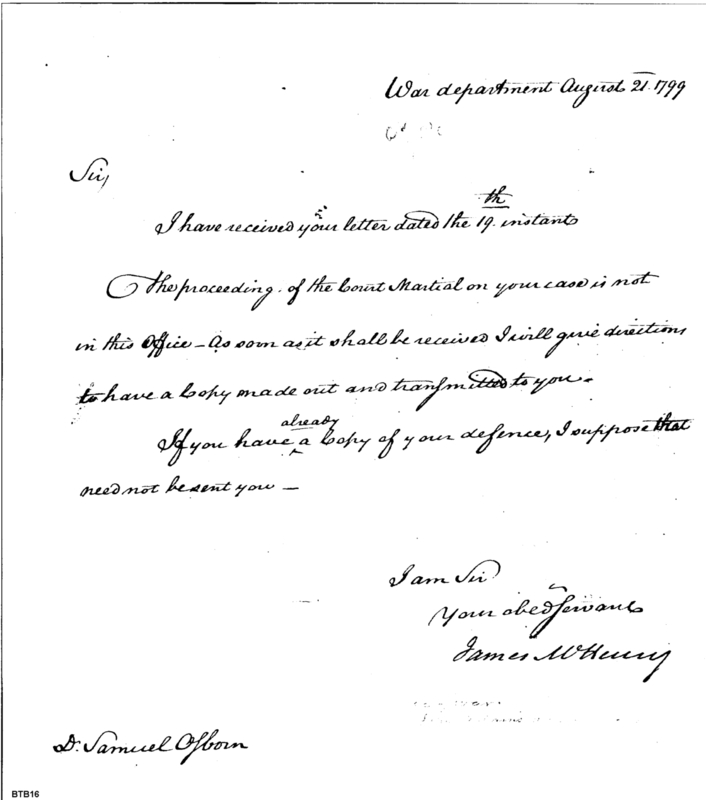 War department August 21. 1799
Sir,
I have received your letter dated the 19th instant
The proceeding. of the Court Martial on your case is not
in this Office – As soon as it shall be received I will give directions
to have a Copy made out and transmitted to you.
If you have already a Copy of your defence, I suppose that
need not be sent you –
I am Sir
Your obed servant
James McHenry
Dr. Samuel Osborn
BTB16